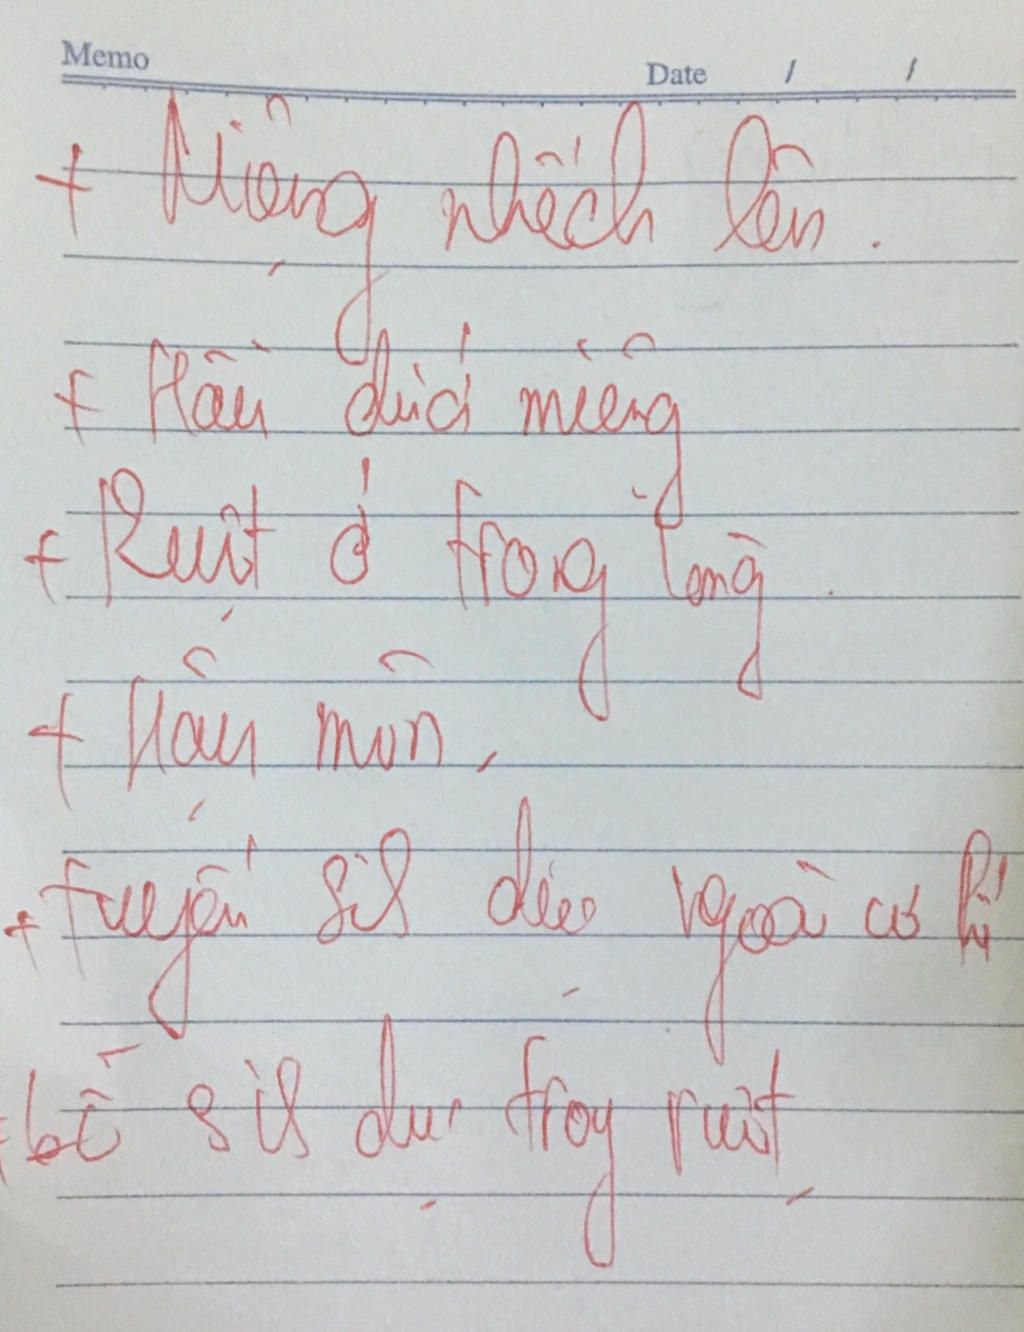 Memo Date / /
+ Miệng nhếch lên.
+ Hầu dưới miệng
+ Ruột ở trong lòng.
+ Hậu môn.
+ tuyến sinh dục ngoài cơ thể
+ bộ sinh dục trong ruột